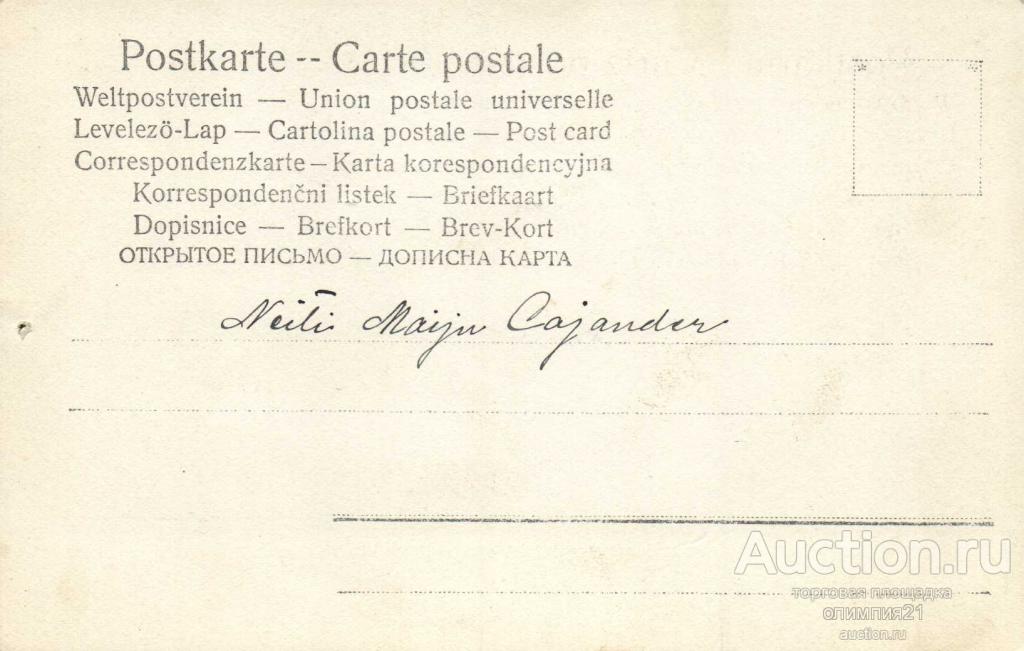 Postkarte -- Carte postale
Weltpostverein — Union postale universelle
Levelező-Lap — Cartolina postale — Post card
Correspondenzkarte — Karta korespondencyjna
Korrespondenčni listek — Briefkaart
Dopisnice — Brefkort — Brev-Kort
ОТКРЫТОЕ ПИСЬМО — ДОПИСНА КАРТА
Neiti Maiju Cajander
Auction.ru
торговая площадка
олимпия21
auction.ru